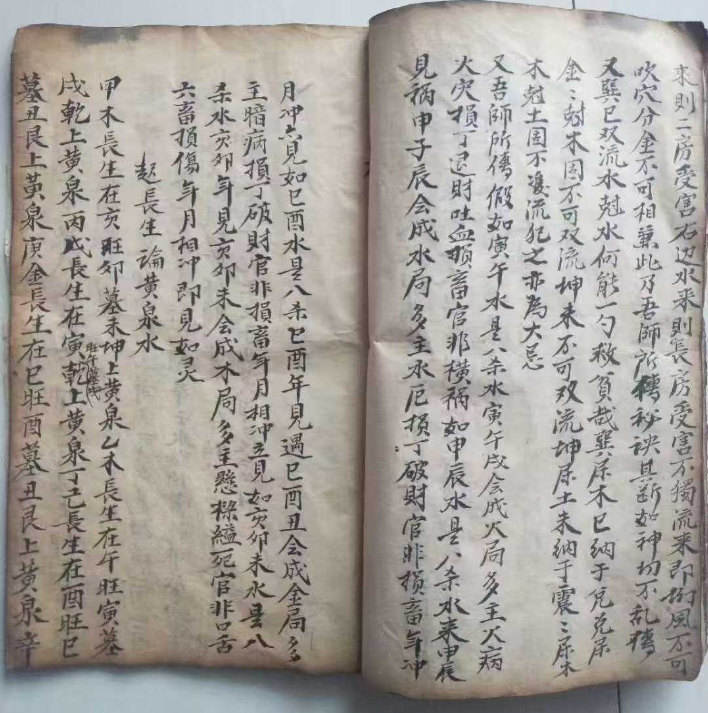 來則二房受害右边水來則長房受害不獨流來即拗風不可
吹穴分金不可相兼此乃吾師所傳秘诀其断如神切不乱傳
又巽巳双流水尅水何能一勺救貧哉巽屬木巳纳于兌兌屬
金金尅木固不可双流坤未不可双流坤屬土未纳于震震屬木
木尅土固不双流犯之亦為大忌
又吾師所傳假如寅午水是八杀水寅午戌会成火局多主火病
火灾損丁退財吐血損畜官非横祸如甲辰水是八杀水来申辰
見祸申子辰会成水局多主水厄損丁破財官非損畜年冲
月冲六見如巳酉水是八杀巳酉年見遇巳酉丑会成金局多
主暗病損丁破財官非損畜年月相冲立見如亥卯未水是八
杀水亥卯年見亥卯未会成木局多主懸樑縊死官非口舌
六畜損傷年月相冲即見如灵
起長生論黃泉水
甲木長生在亥旺卯墓未坤上黃泉乙木長生在午旺寅墓
戌乾上黃泉丙戊長生在寅旺午墓戌乾上黃泉丁己長生在酉旺巳
墓丑艮上黃泉庚金長生在巳旺酉墓丑艮上黃泉辛